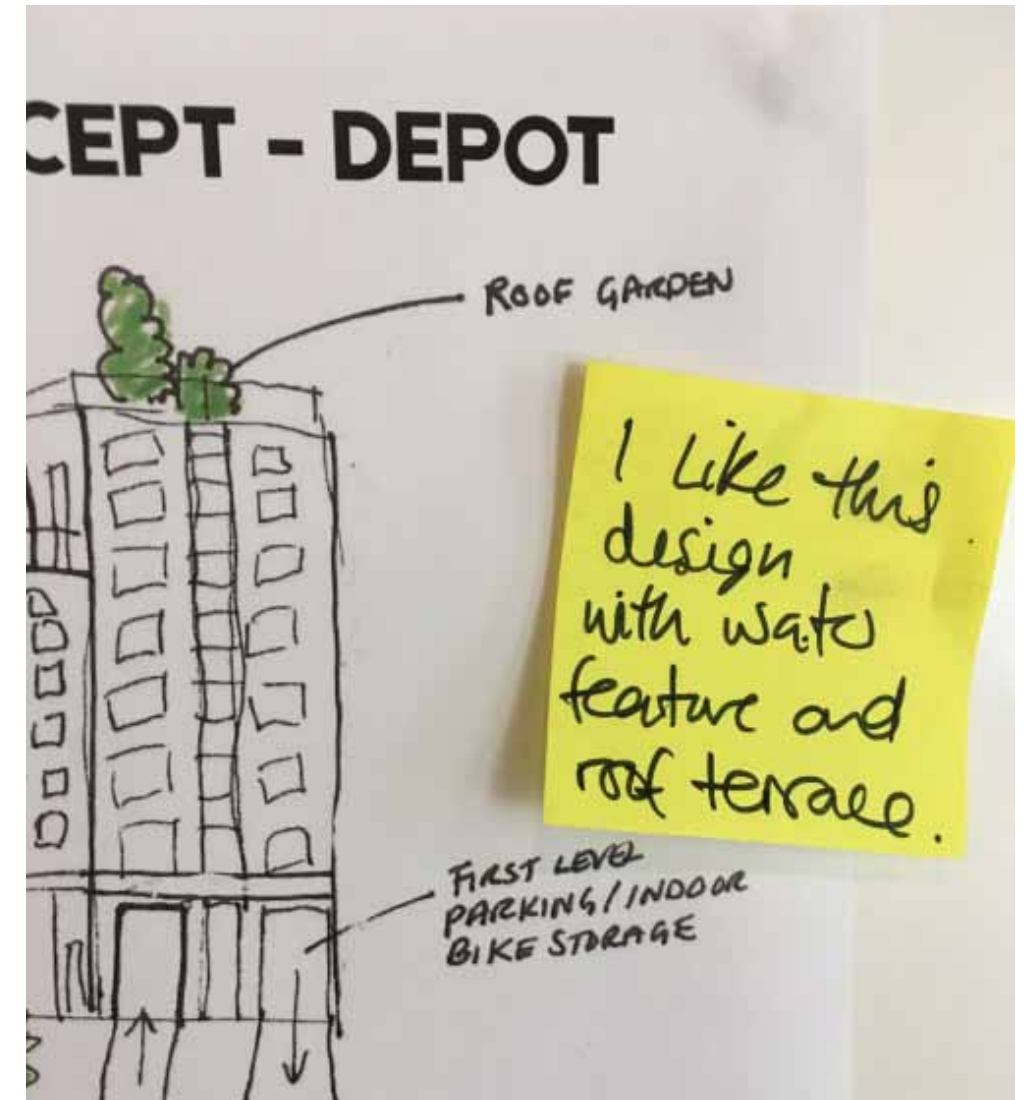 CEPT - DEPOT
ROOF GARDEN
I Like this
design
with water
feature and
roof terrace.
FIRST LEVEL
PARKING/INDOOR
BIKE STORAGE